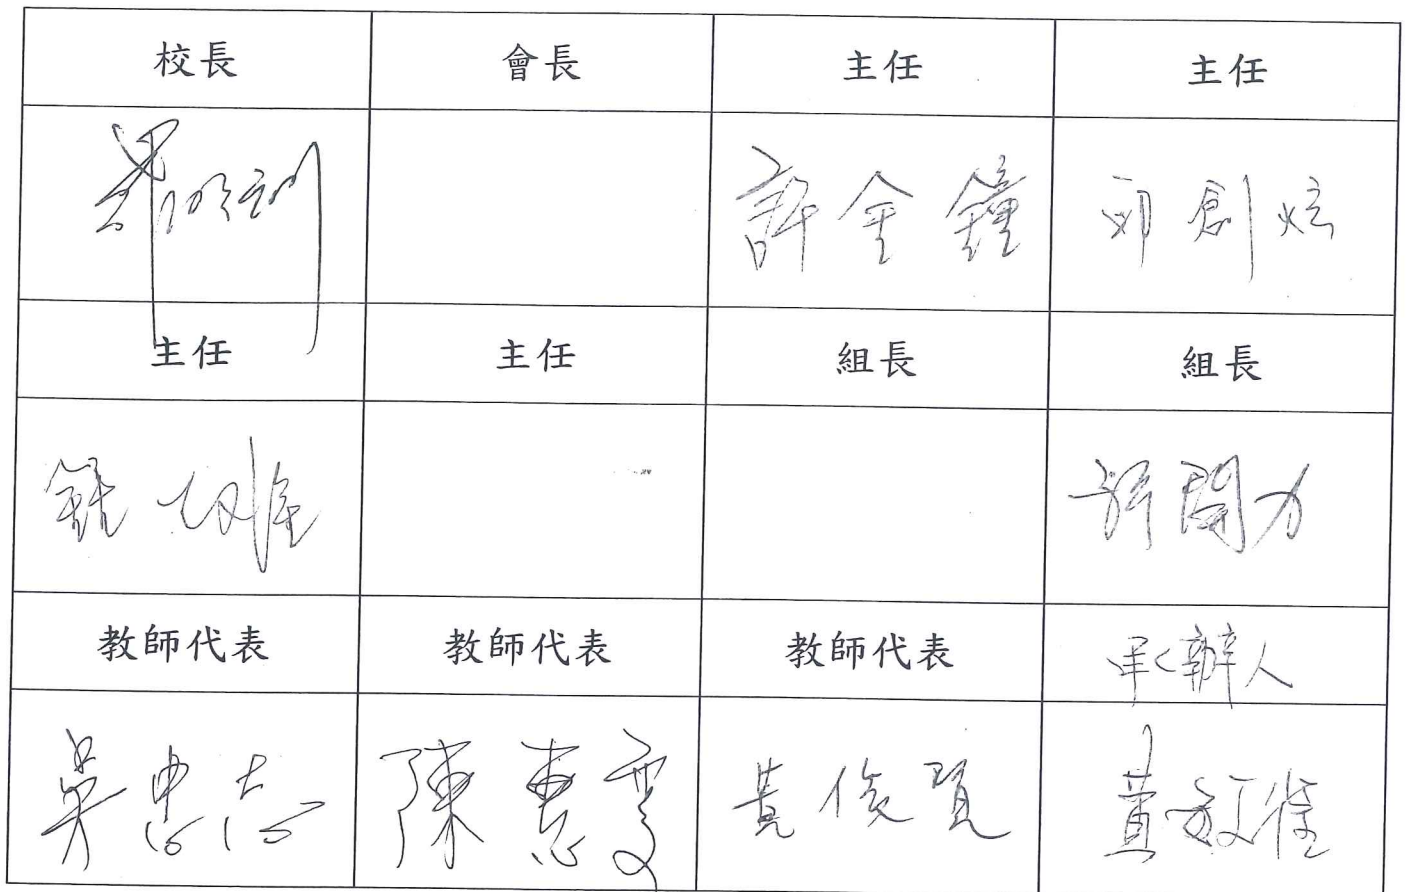 校長 會長 主任 主任
許金鐘 邱創炫
主任 主任 組長 組長
許開力
教師代表 教師代表 教師代表 承辦人
吳忠志 陳惠雯 黃俊賢